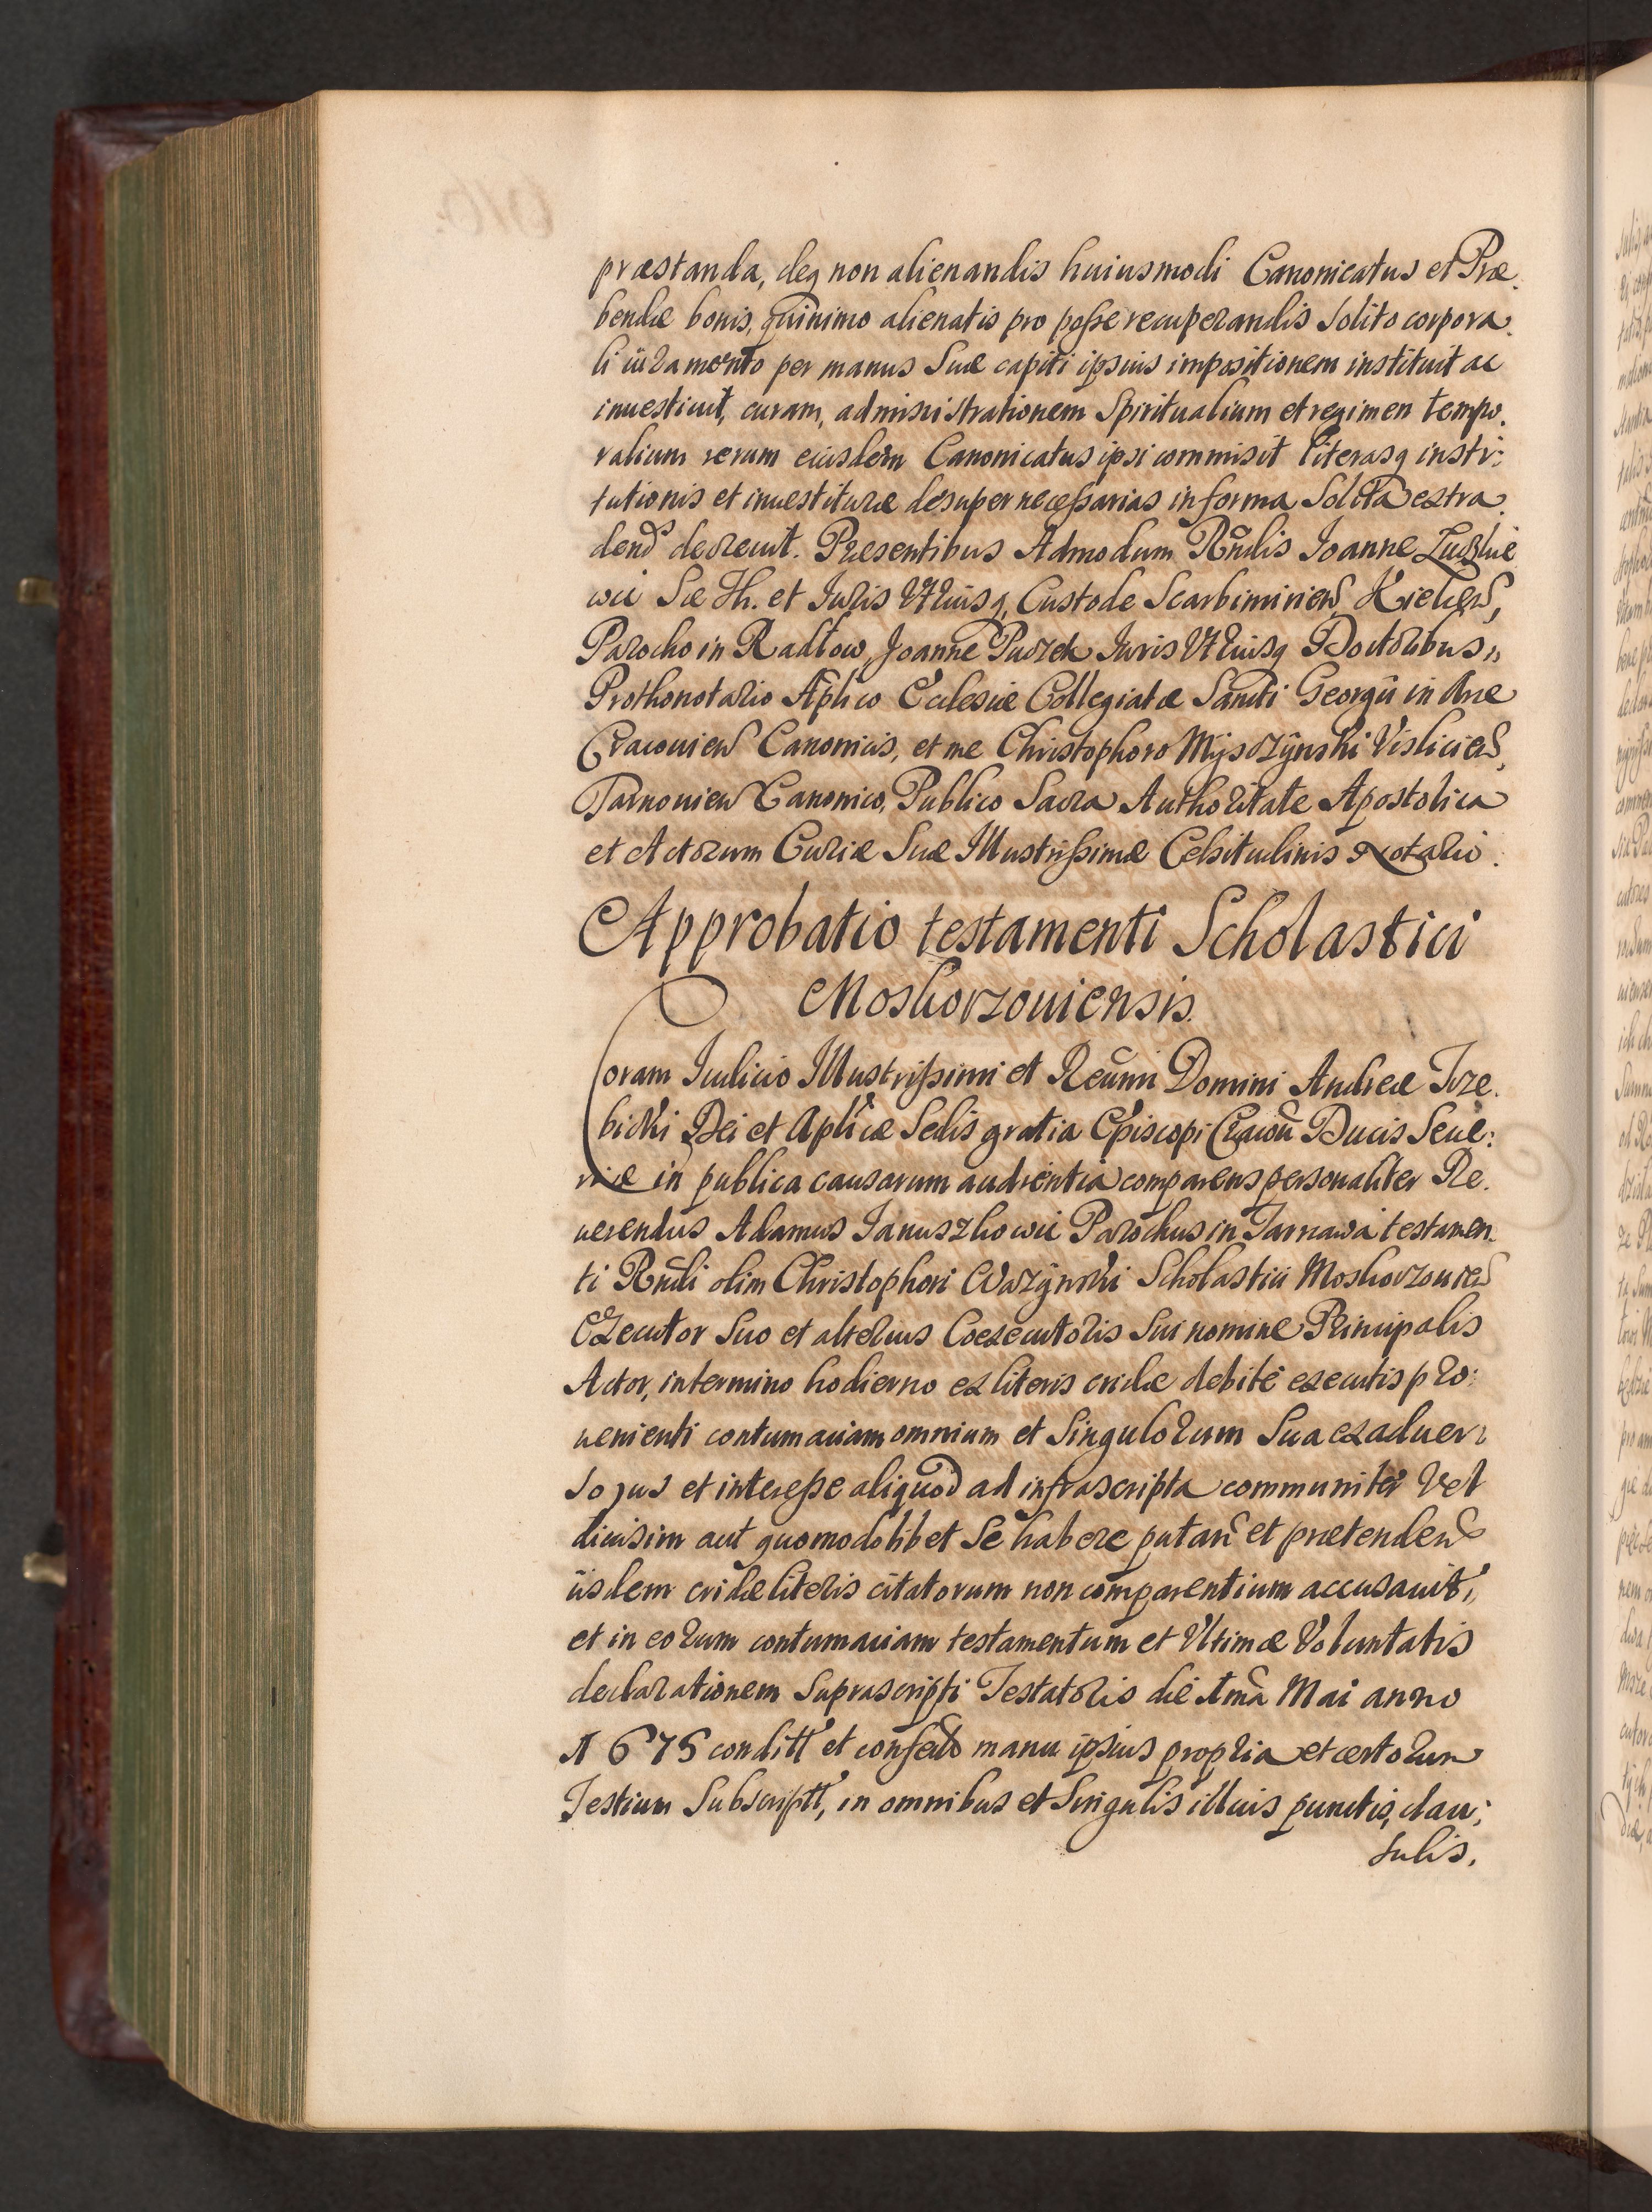 præstanda, deq non alienandis huiusmodi Canonicatus et Præ
bendæ bonis, quinimo alienatis pro posse recuperandis solito corpora
li iuramento per manus suæ capiti ipsius impositionem instituit ac
inuestiuit, curam, administrationem Spiritualium et regimen tempo
ralium rerum eiusdem Canonicatus ipsi commisit literasq insti:
tutionis et inuestituræ desuper necessarias in forma Solita extra
dend decreuit. Præsentibus Admodum Rndis Joanne
wic Sæ Th. et Juris Vtriusq, Custode Scarbimirien, Kielcen,
Parocho in Radłow, Joanne Juris Vtriusq Doctoribus,
Prothonotario Aplico Ecclesiæ Collegiatæ Sancti Georgii in Arce
Cracouien Canonicis, et me Christophoro Mijszÿnski Vislicien,
Tarnouien Canonico, Publico Sacra Authoritate Apostolica
et Actorum Curiæ Suæ Illustrissimæ Celsitudinis Notario.
Approbatio testamenti Scholastici
Moskorzouiensis.
Coram Iudicio Illustrissimi et Reumi Domini Andreæ Trze
bicki Dei et Aplicæ Sedis gratia Episcopi Cracou Ducis Seue:
riæ in publica causarum audientia comparens personaliter Re
uerendus Adamus Januszkowic Parochus in Tarnawa testamen
ti Rndi olim Christophori Scholastici Moskorzouien
Executor suo et alterius Coexecutoris sui nomine Principalis
Actor, in termino hodierno ex literis cridæ debitè executis pro:
uenienti contumaciam omnium et Singulorum Sua ex aduer:
so jus et interesse aliquod ad infrascripta communiter vel
diuisim aut quomodolibet se habere putan et prætenden
iisdem cridæ literis citatorum non comparentium accusauit,
et in eorum contumaciam testamentum et Vltimæ Voluntatis
declarationem Suprascripti Testatoris die 1ma Mai anno
1675 conditt et confect manu ipsius propria et certorum
Testium Subscriptt, in omnibus et Singulis illius punctis, clau:
sulis,